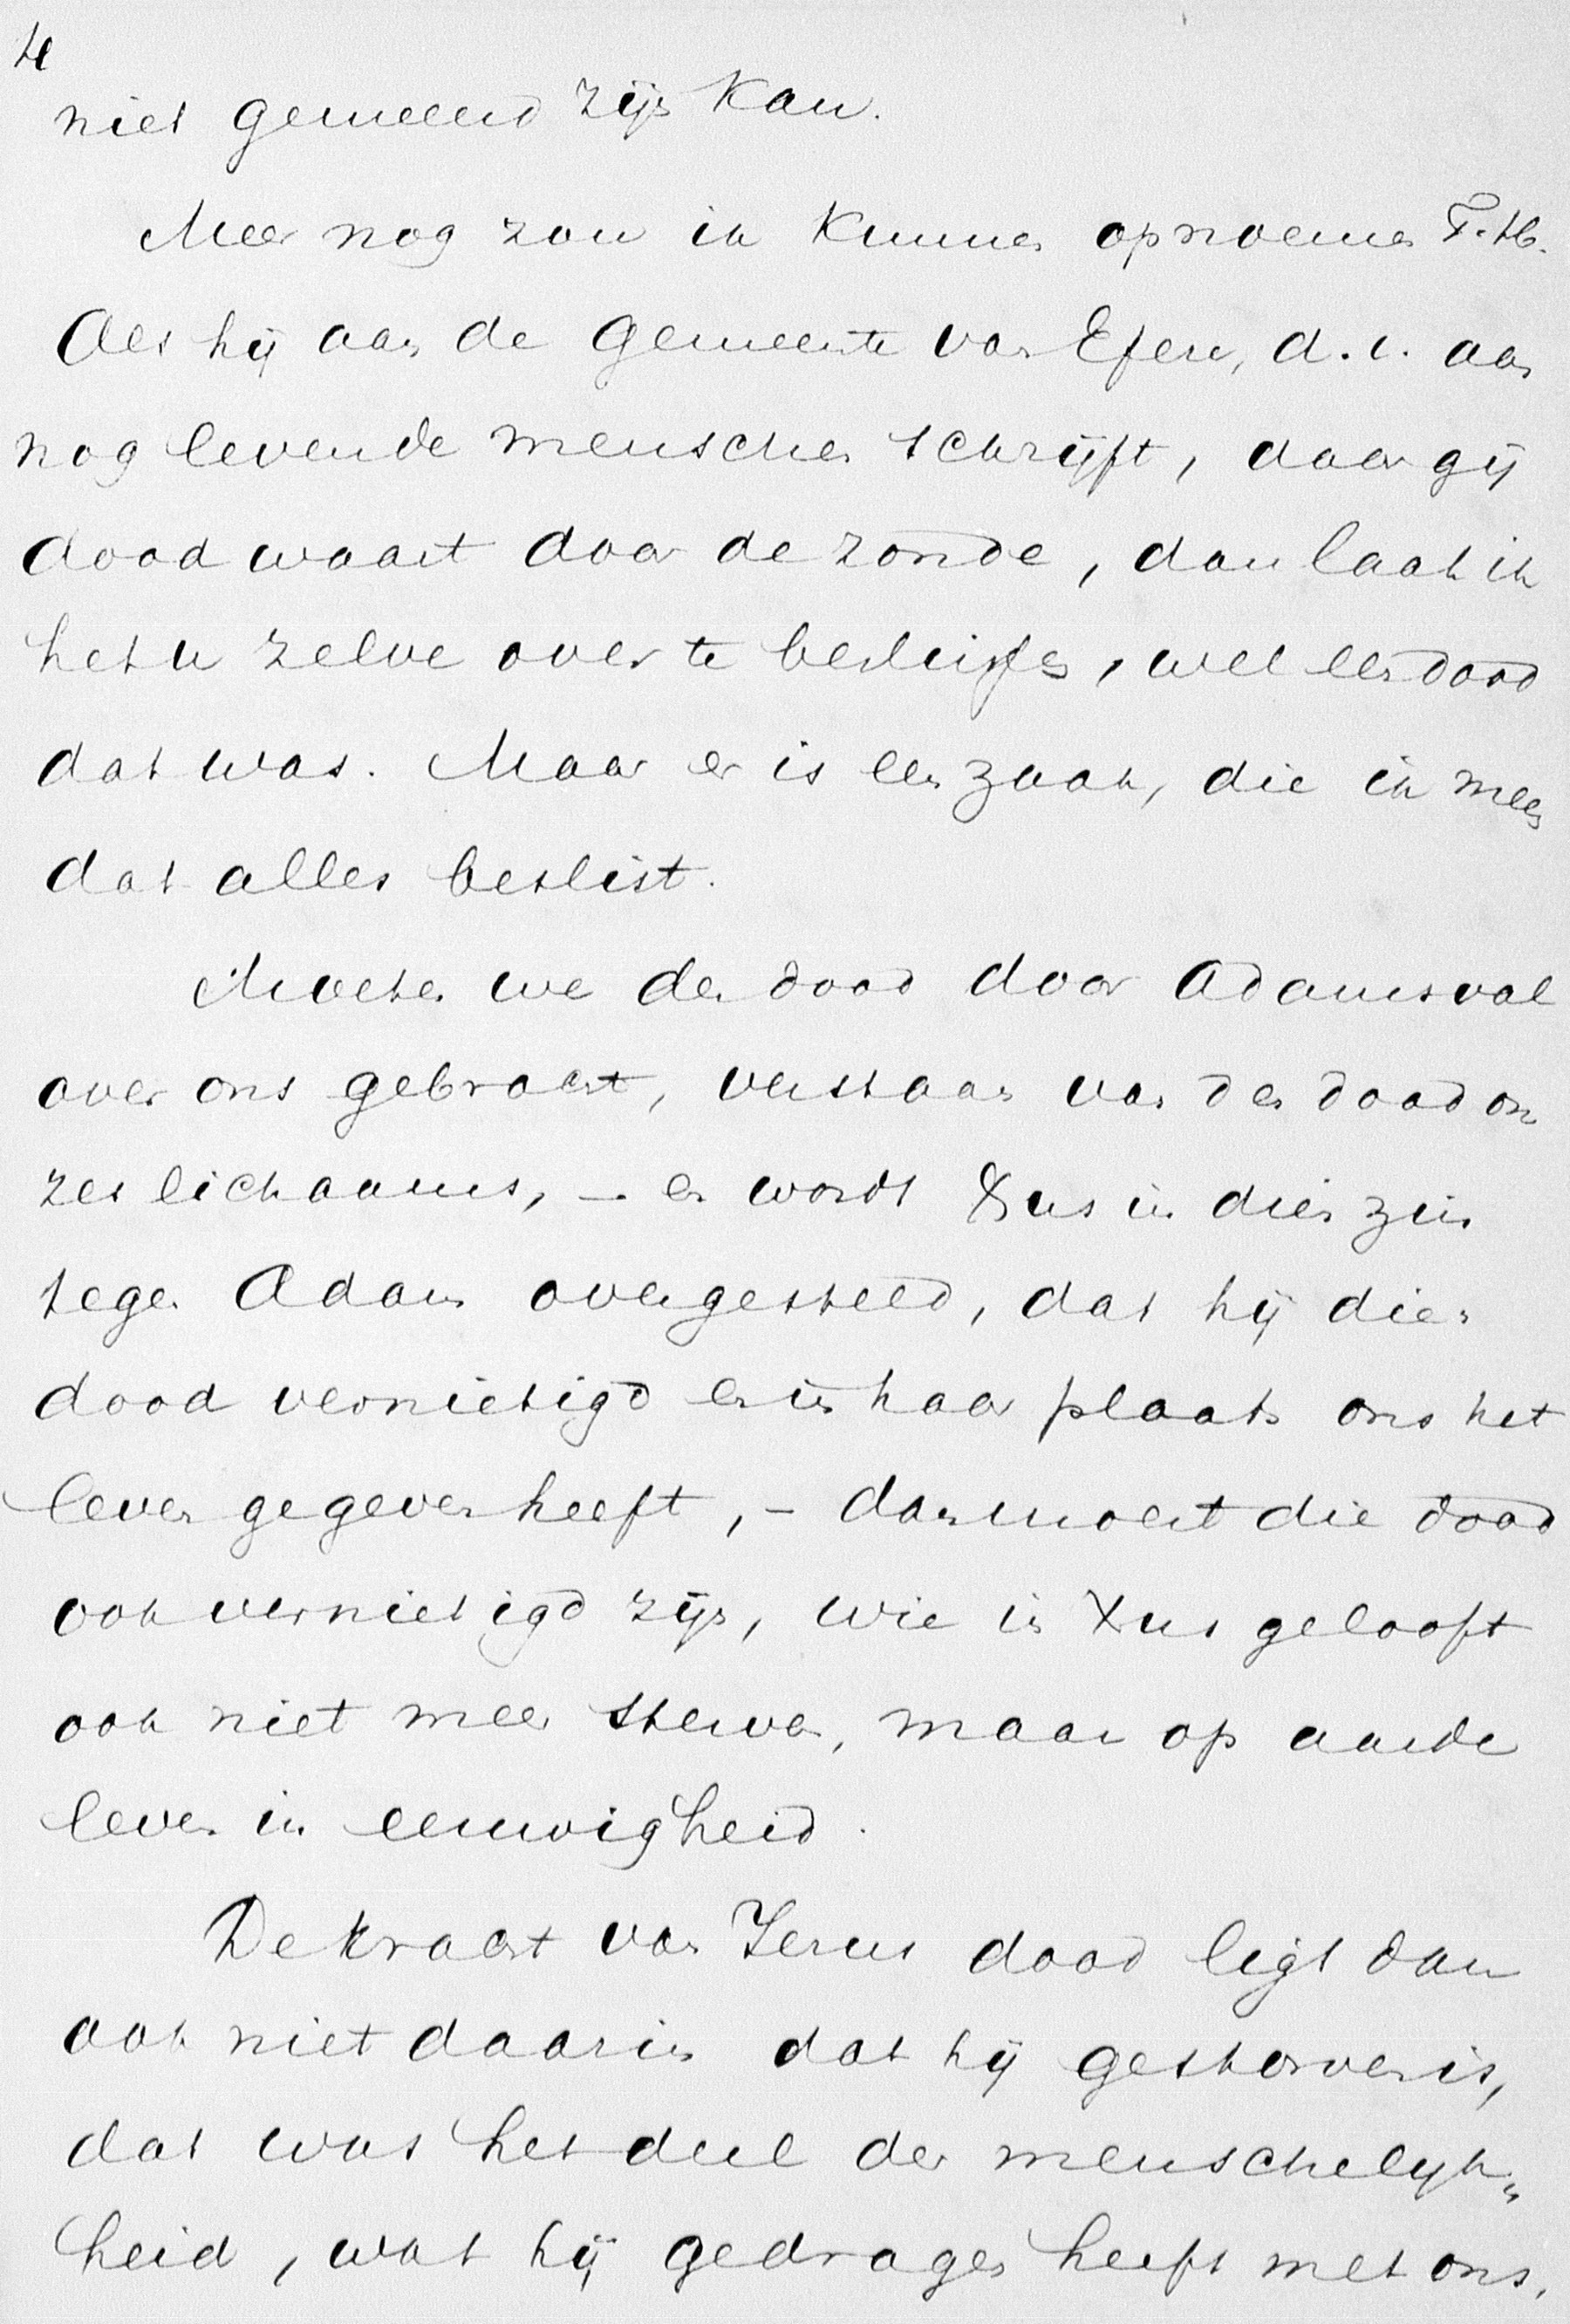 4
niet gemeend zijn kan.
Meer nog zou ik kunnen opnoemen T.H.
Als hij aan de gemeente van Efese, d.i. aan
nog levende menschen schrijft, daar gij
dood waart door de zonde, dan laat ik
het u zelve over te beslissen, wel een dood
dat was. Maar er is een zaak, die ik meen
dat alles beslist.
Moeten we den dood door Adams val
over ons gebracht, verstaan van den dood on
zes lichaams, – en wordt Xus in dien zin
tegen Adam overgesteld, dat hij dien
dood vernietigd en in haar plaats ons het
leven gegeven heeft, – dan moest die dood
ook vernietigd zijn, wie in Xus gelooft
ook niet meer sterven, maar op aarde
leven in eeuwigheid.
De kracht van Jezus dood ligt dan
ook niet daarin dat hij gestorven is,
dat was het deel der menschelijk„
heid, wat hij gedragen heeft met ons,